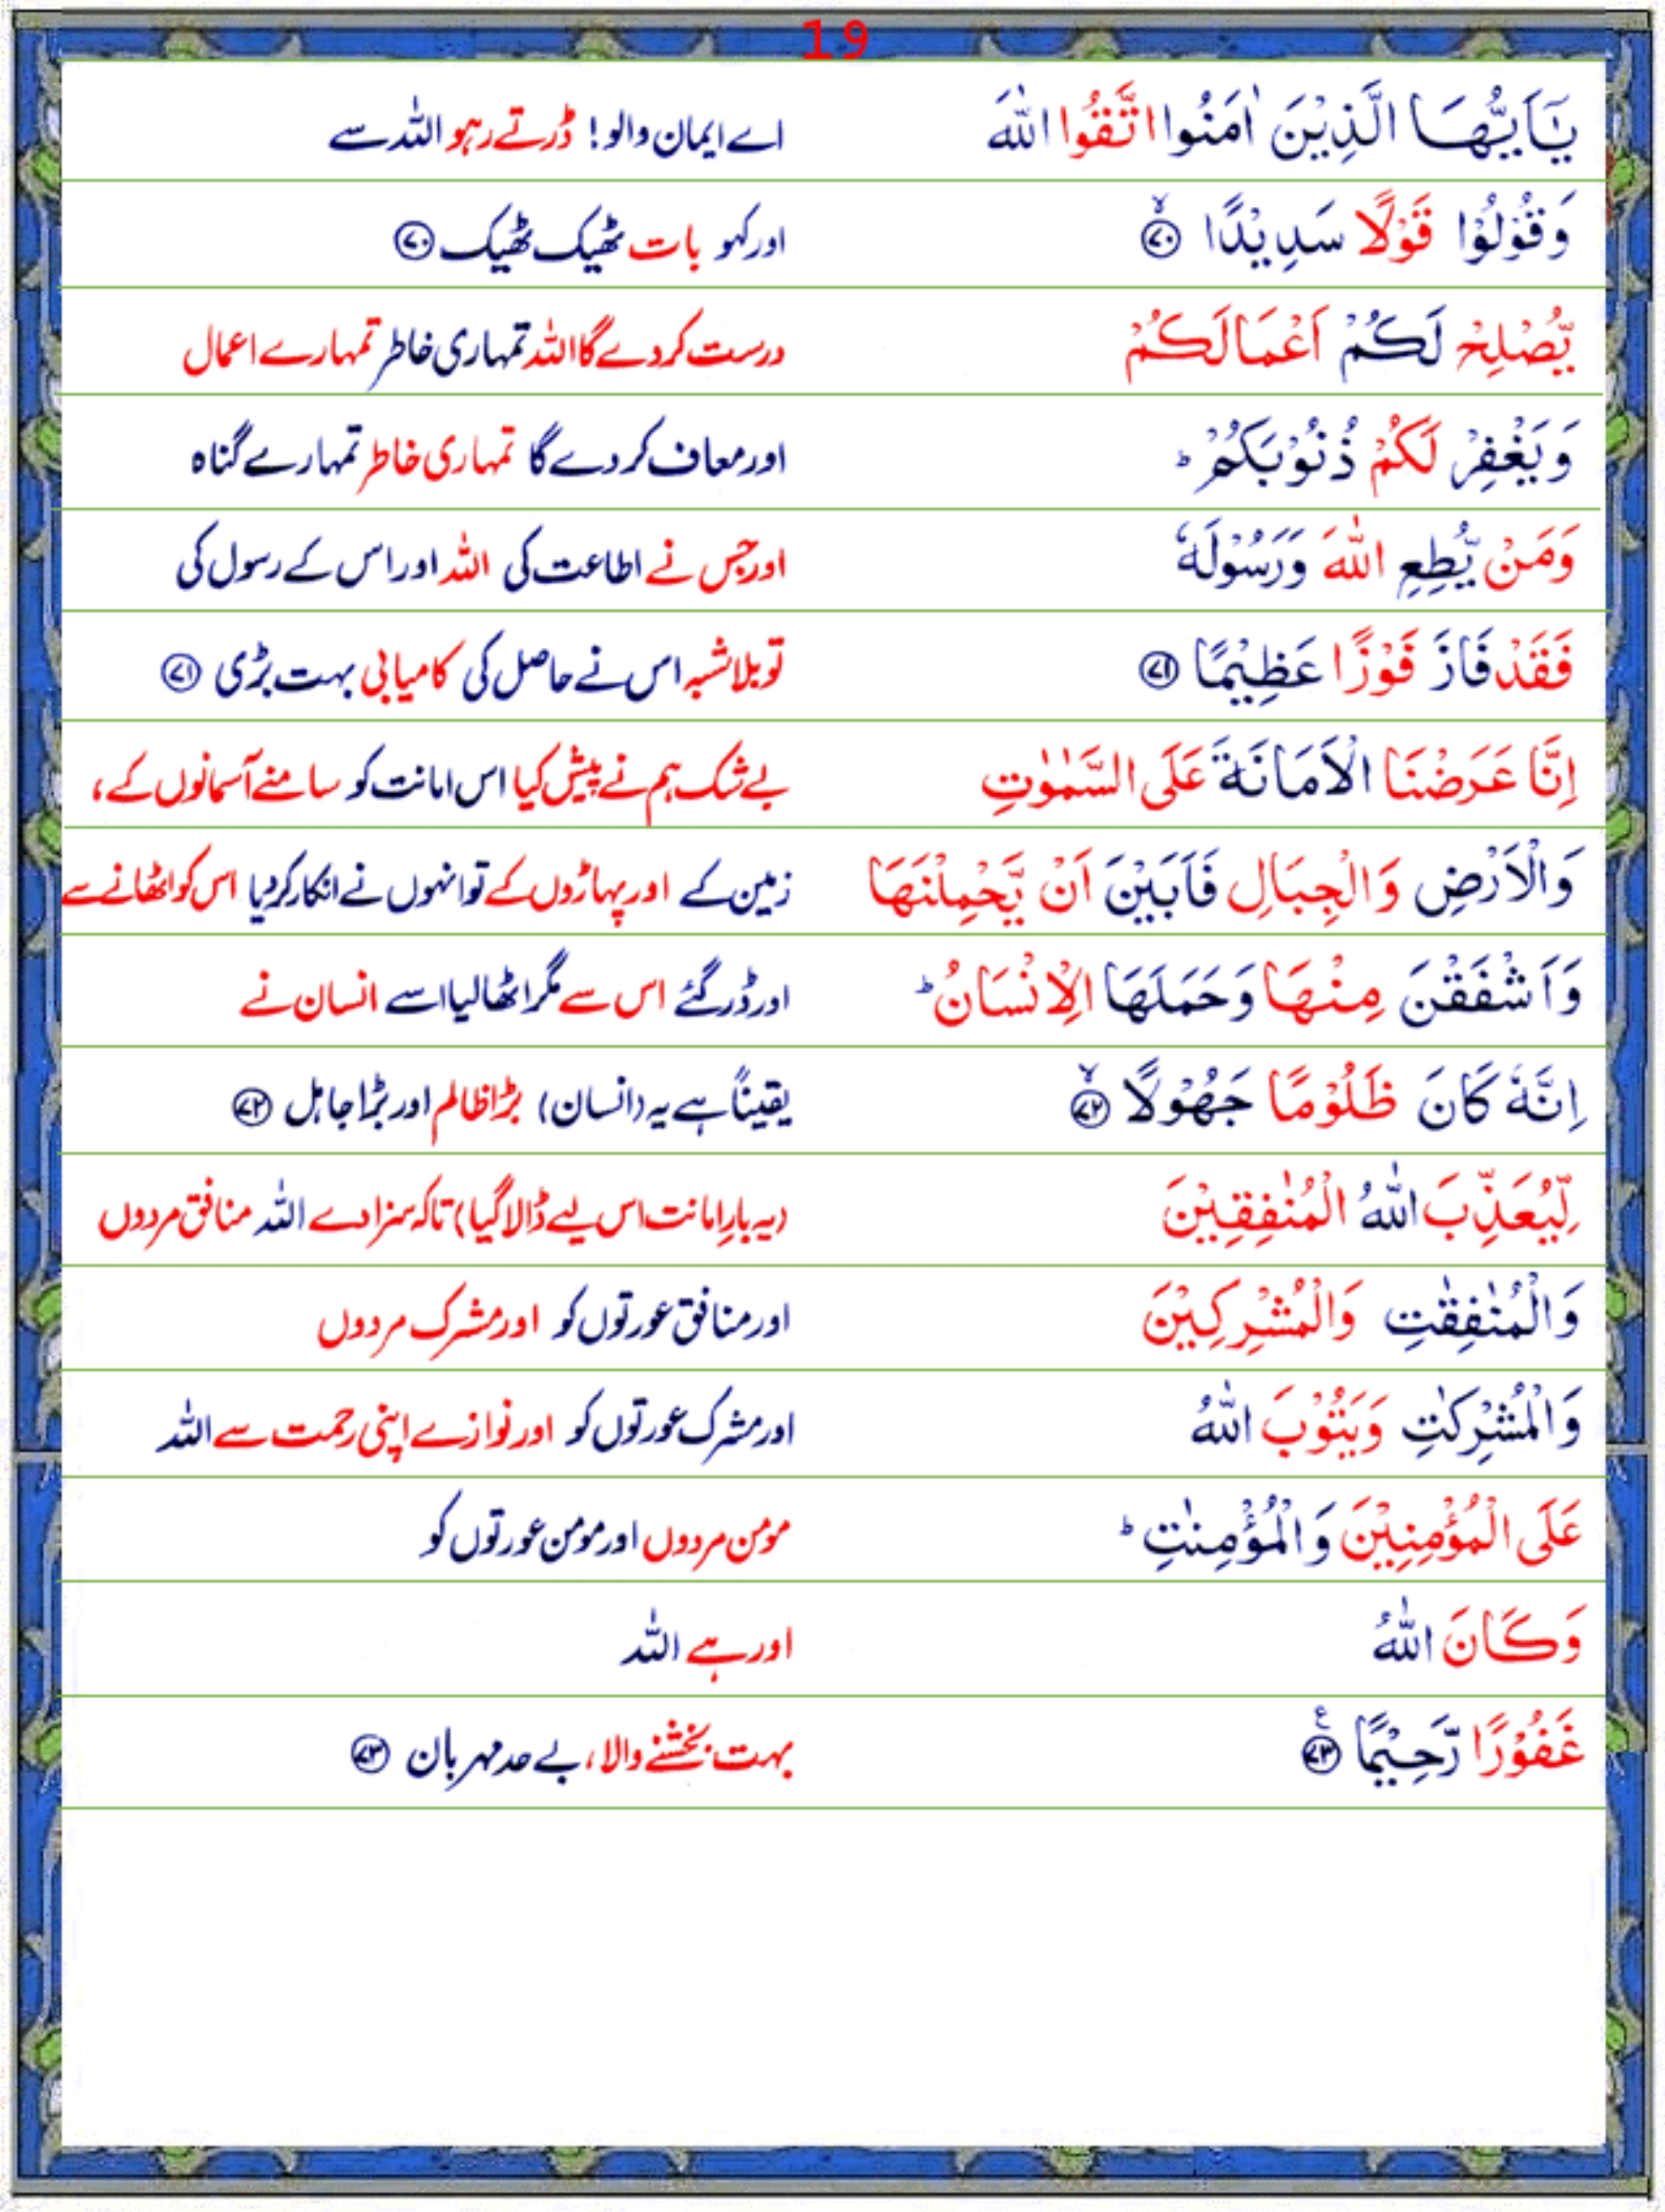 19
يٰٓاَيُّهَا الَّذِيْنَ اٰمَنُوا اتَّقُوا اللّٰهَ اے ایمان والو! ڈرتے رہو اللہ سے
وَقُوْلُوْا قَوْلًا سَدِيْدًا ۙ﴿۷۰﴾ اور کہو بات ٹھیک ٹھیک ﴿۷۰﴾
يُّصْلِحْ لَكُمْ اَعْمَالَكُمْ درست کردے گا اللہ تمہاری خاطر تمہارے اعمال
وَيَغْفِرْ لَكُمْ ذُنُوْبَكُمْ ؕ اور معاف کردے گا تمہاری خاطر تمہارے گناہ
وَمَنْ يُّطِعِ اللّٰهَ وَرَسُوْلَهٗ اور جس نے اطاعت کی اللہ اور اس کے رسول کی
فَقَدْ فَازَ فَوْزًا عَظِيْمًا ﴿۷۱﴾ تو بلاشبہ اس نے حاصل کی کامیابی بہت بڑی ﴿۷۱﴾
اِنَّا عَرَضْنَا الْاَمَانَةَ عَلَى السَّمٰوٰتِ بے شک ہم نے پیش کیا اس امانت کو سامنے آسمانوں کے،
وَالْاَرْضِ وَالْجِبَالِ فَاَبَيْنَ اَنْ يَّحْمِلْنَهَا زمین کے اور پہاڑوں کے تو انہوں نے انکار کردیا اس کو اٹھانے سے
وَاَشْفَقْنَ مِنْهَا وَحَمَلَهَا الْاِنْسَانُ ؕ اور ڈر گئے اس سے مگر اٹھا لیا اسے انسان نے
اِنَّهٗ كَانَ ظَلُوْمًا جَهُوْلًا ۙ﴿۷۲﴾ یقیناً ہے یہ (انسان) بڑا ظالم اور بڑا جاہل ﴿۷۲﴾
لِّيُعَذِّبَ اللّٰهُ الْمُنٰفِقِيْنَ (یہ بارِ امانت اس لیے ڈالا گیا) تاکہ سزا دے اللہ منافق مردوں
وَالْمُنٰفِقٰتِ وَالْمُشْرِكِيْنَ اور منافق عورتوں کو اور مشرک مردوں
وَالْمُشْرِكٰتِ وَيَتُوْبَ اللّٰهُ اور مشرک عورتوں کو اور نوازے اپنی رحمت سے اللہ
عَلَى الْمُؤْمِنِيْنَ وَالْمُؤْمِنٰتِ ؕ مومن مردوں اور مومن عورتوں کو
وَكَانَ اللّٰهُ اور ہے اللہ
غَفُوْرًا رَّحِيْمًا ﴿۷۳﴾ ع بہت بخشنے والا، بے حد مہربان ﴿۷۳﴾